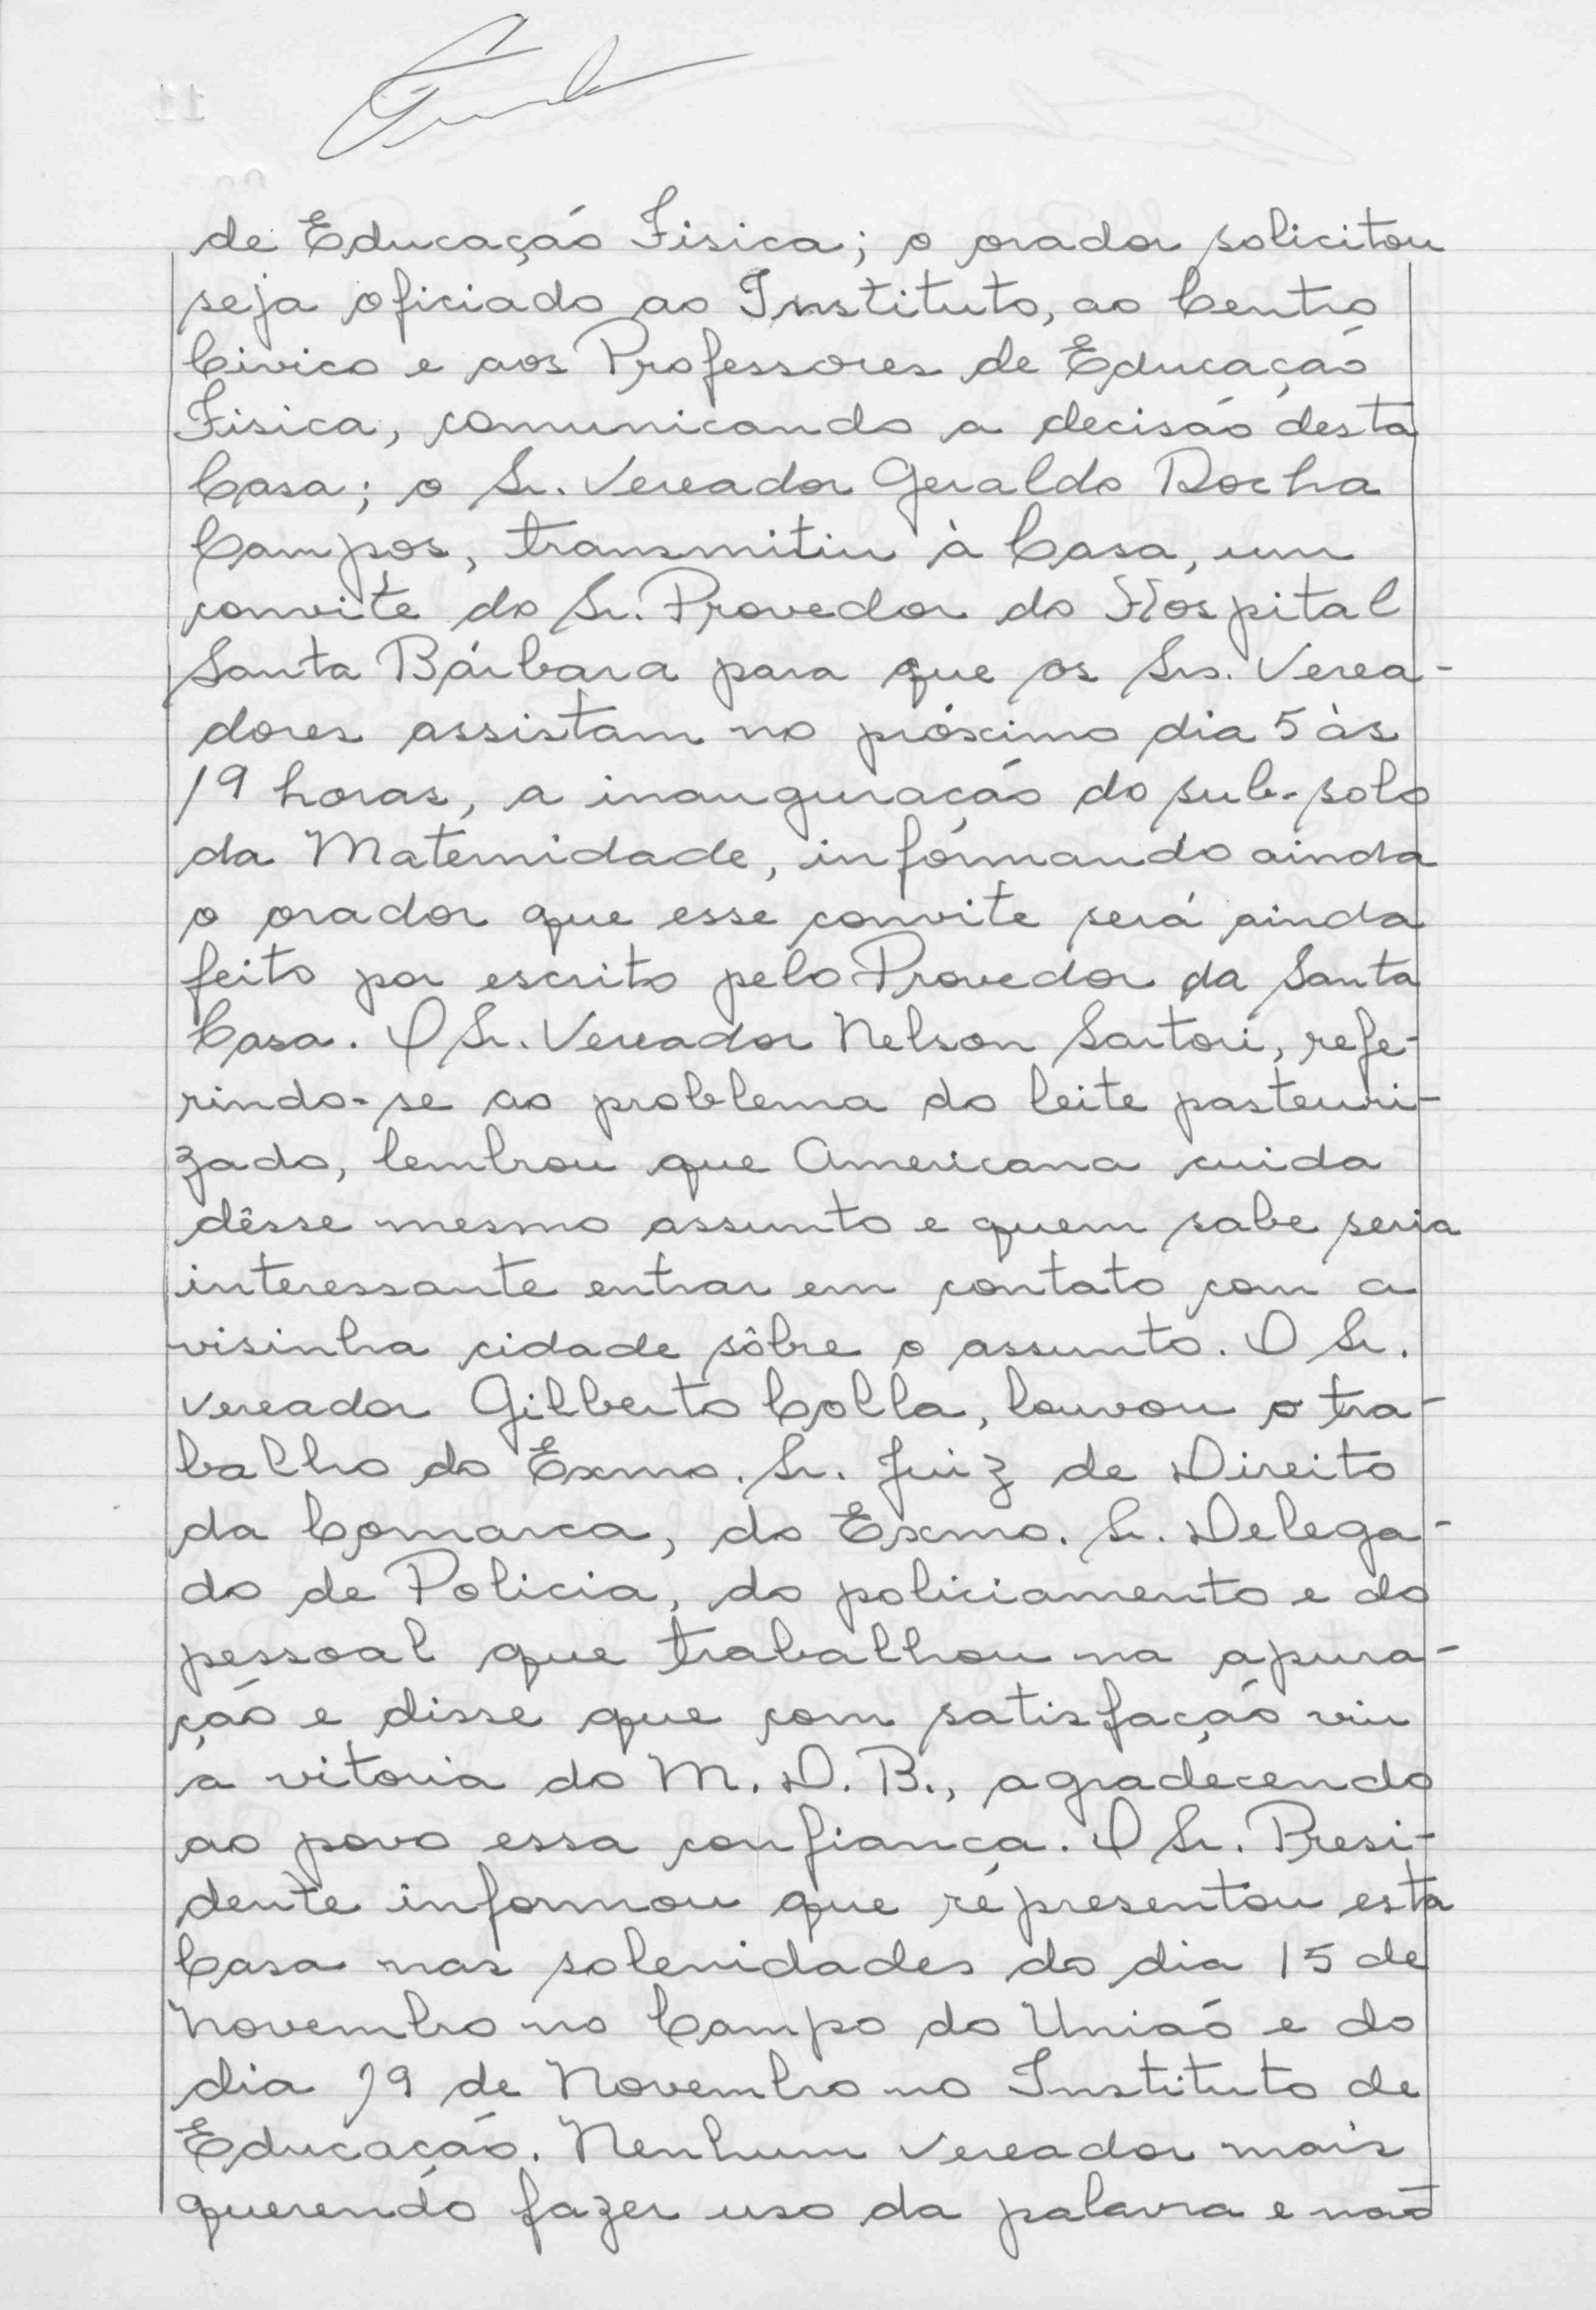 de Educação Fisica; o orador solicitou
seja oficiado ao Instituto, ao Centro
Civico e aos Professores de Educação
Fisica, comunicando a decisão desta
Casa; o Sr. Vereador Geraldo Rocha
Campos, transmitiu à Casa, um
convite do Sr. Provedor do Hospital
Santa Bárbara para que os Srs. Verea-
dores assistam no próximo dia 5 às
19 horas, a inauguração do sub-solo
da Maternidade, informando ainda
o orador que esse convite será ainda
feito por escrito pelo Provedor da Santa
Casa. O Sr. Vereador Nelson Sartori, refe-
rindo-se ao problema do leite pasteuri-
zado, lembrou que Americana cuida
dêsse mesmo assunto e quem sabe seria
interessante entrar em contato com a
visinha cidade sôbre o assunto. O Sr.
Vereador Gilberto Colla, louvou o tra-
balho do Exmo. Sr. Juiz de Direito
da Comarca, do Exmo. Sr. Delega-
do de Policia, do policiamento e do
pessoal que trabalhou na apura-
ção e disse que com satisfação viu
a vitoria do M. D. B., agradecendo
ao povo essa confiança. O Sr. Presi-
dente informou que representou esta
Casa nas solenidades do dia 15 de
Novembro no Campo do União e do
dia 19 de Novembro no Instituto de
Educação. Nenhum Vereador mais
querendo fazer uso da palavra e não